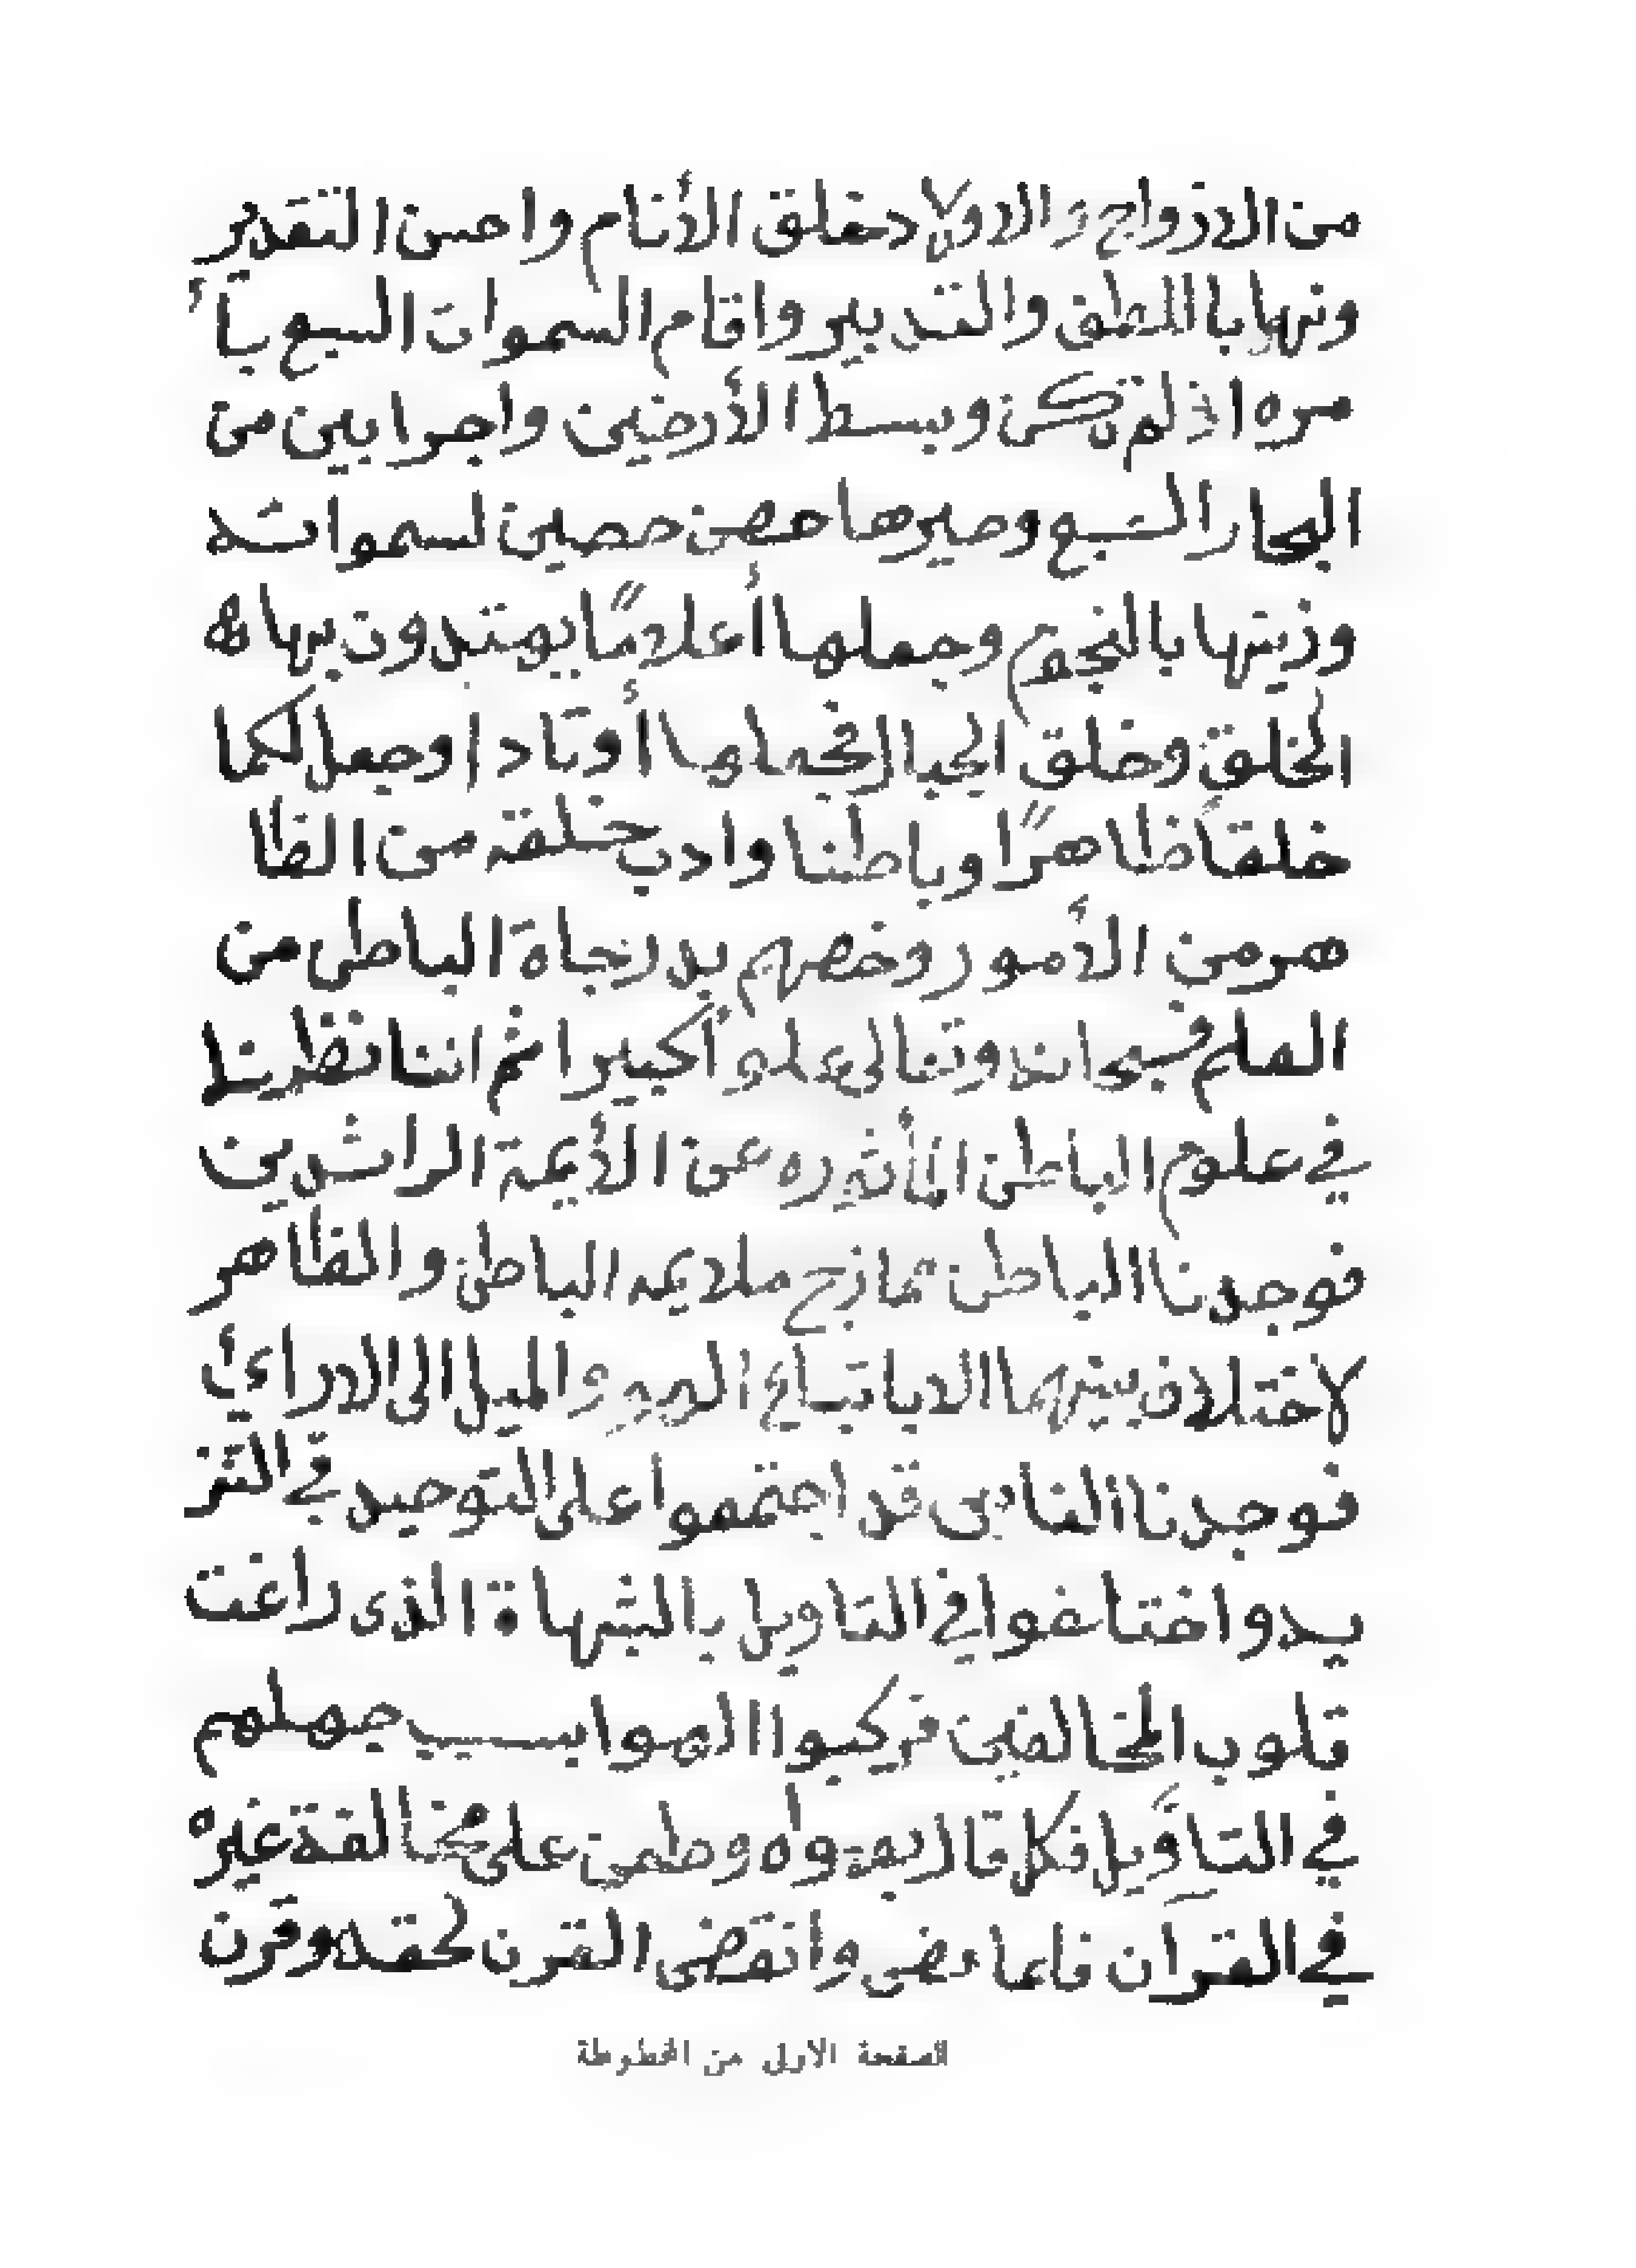 من الازواج والاولاد خلق الأنام واحسن التقدير
ونهها باللطف والتدبير واقام السموات السبع بأ
مره اذ لم تكن وبسط الأرضين واجرا بين من
البحار السبع وصيرها حصن حصين لسمواته
وزينها بالنجوم وجعلها أعلامًا يهتدون بها
الخلق وخلق الجبال فجعلها أوتادا وجعل لكما
خلقاً ظاهرًا وباطنا وادب خلقه من الظا
هر من الأمور وخصهم بدرجاة الباطن من
العلم فسبحانه وتعالى علوءً كبيرا ثم اننا نظرنا
في علوم الباطن المأثوره عن الأيمة الراشدين
فوجدنا الباطن نمازح ملايمه الباطن والظاهر
لاختلاف بينهما الا باتباع الهوء والميل الى الاراءي
فوجدنا الناس قد اجتمعوا على التوحيد في التنز
يد واختلفوا في التاويل بالشبهاة الذى راغت
قلوب المخالفين فركبوا الهوا بسبب جهلهم
في التاَويل فكل قال بهواه وطعن على مُخالفة غيره
في القرآن فلما مضى وانقضى القرن لحقه وقرن
الصفحة الاولى من المخطوطة